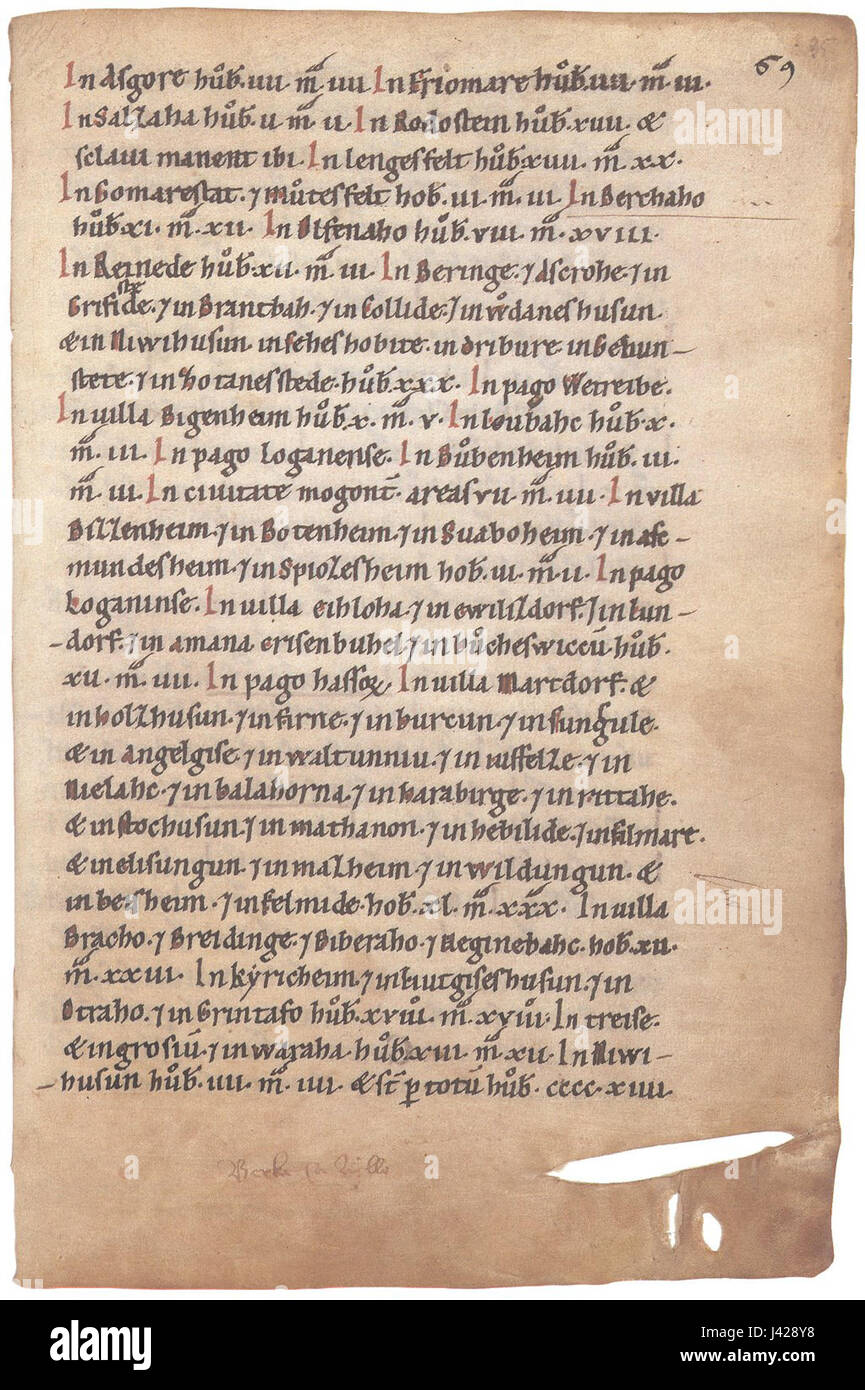 69
In Asgore hůb. IIII. m̊. IIII. In Friomare hůb. IIII. m̊. III.
In Salzaha hůb. V. m̊. II. In Rodostein hůb. XVII. &
sclaui manent ibi. In lengesfelt hůb. XVII. m̊. XX.
In Gomarestat. ⁊ Můtesfelt hob. VI. m̊. III. In Berchaho
hůb. XI. m̊. XII. In Olfenaho hůb. VIII. m̊. XVIII.
In Reinede hůb. XII. m̊. III. In Beringe. ⁊ Ascrohe. ⁊ in
Grifstede. ⁊ in Brantbah. ⁊ in Collide. ⁊ in wůdaneshusun
& in Niwihusun. in seheshobite. in dribure. in Gebun-
stete. ⁊ in hotanesstede. hůb. XXX. In pago Wetreibe.
In uilla Bigenheim hůb. X. m̊. V. In loubahc hůb. X.
m̊. III. In pago Loganense. In Bůbenheim hůb. III.
m̊. III. In ciuitate mogont̄. areas VII. m̊. IIII. In uilla
Billenheim. ⁊ in Botenheim. ⁊ in Suaboheim. ⁊ in asc-
mundesheim. ⁊ in Spiozesheim hob. VI. m̊. II. In pago
Loganinse. In uilla eihloha. ⁊ in ewilizdorf. ⁊ in lun-
dorf. ⁊ in amana crisenbuhel ⁊ in bůcheswiccū. hůb.
XV. m̊. IIII. In pago hassoꝝ. In uilla Martdorf. &
in holzhusun. ⁊ in Firne. ⁊ in burcun. ⁊ in Fungule.
& in Angelgise. ⁊ in waltunniu. ⁊ in uuffelze. ⁊ in
Nielahc. ⁊ in balahorna. ⁊ in harabirge. ⁊ in rittahe.
& in stochusun. ⁊ in mathanon. ⁊ in hebilide. ⁊ in filmare.
& in elisungun. ⁊ in malheim. ⁊ in wildungun. &
in besheim. ⁊ in felmide. hob. XL. m̊. XXX. In uilla
Bracho. ⁊ Breidinge. ⁊ Biberaho. ⁊ Reginebahc. hob. XII.
m̊. XXIII. In kyricheim. ⁊ in liutgiseshusun. ⁊ in
Otraho. ⁊ in Grintafo hůb. XVIII. m̊. XVIII. In treise.
& in grosiū. ⁊ in waraha. hůb. XIII. m̊. XII. In Niwi-
husun hůb. IIII. m̊. IIII. & sc̄t p totū hůb. CCCC. XIIII.
alamy
alamy
Image ID: J428Y8
www.alamy.com